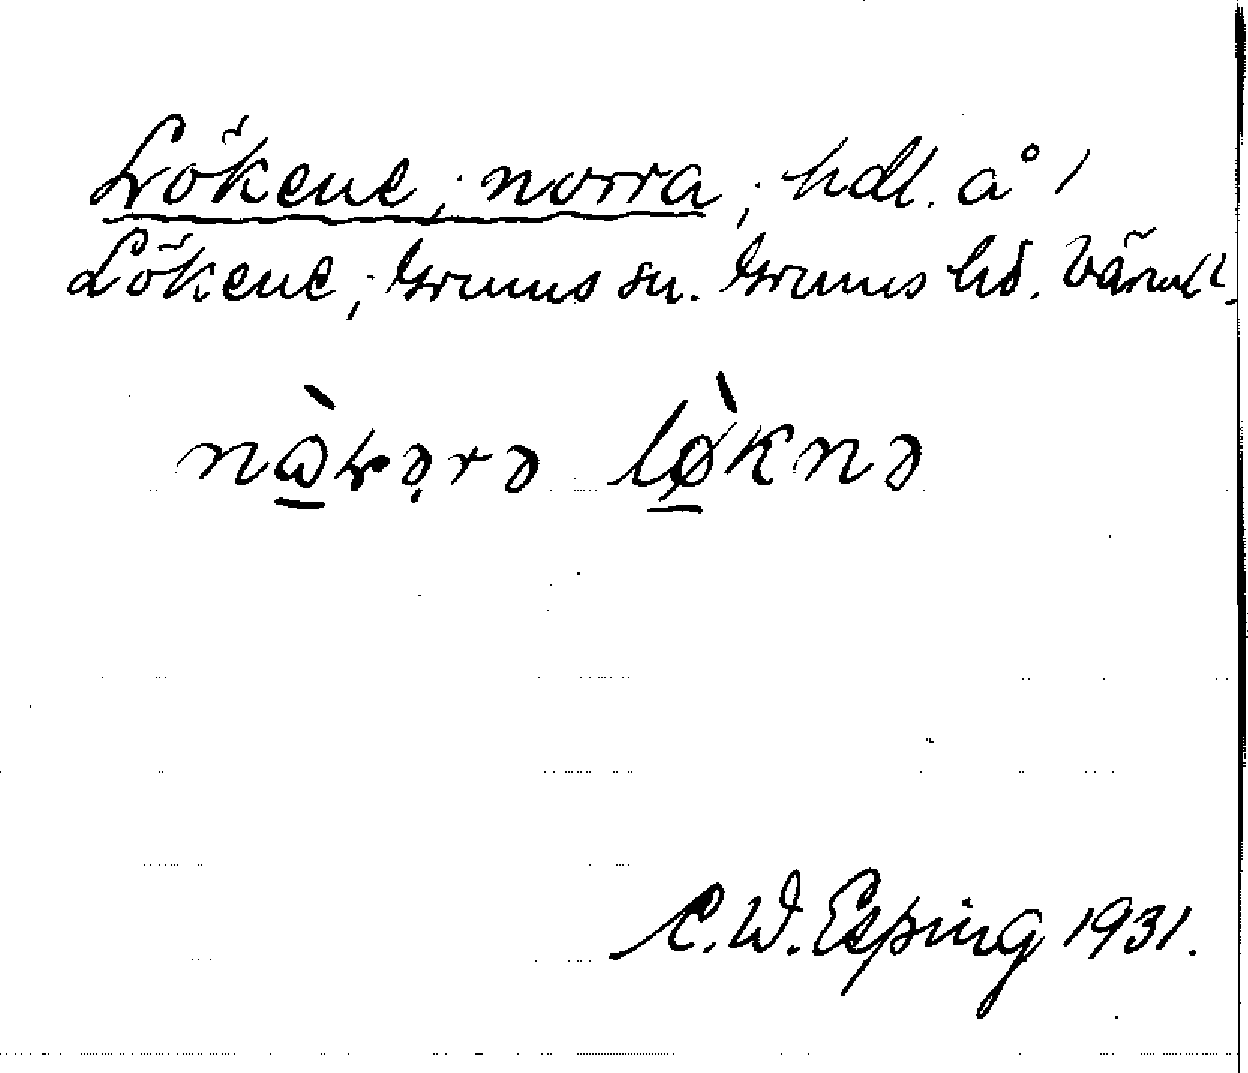 Lökene, norra, hdl. å i
Lökene, Grums sn. Grums hd. Värml.
lø̀knə
C.W. Esping 1931.